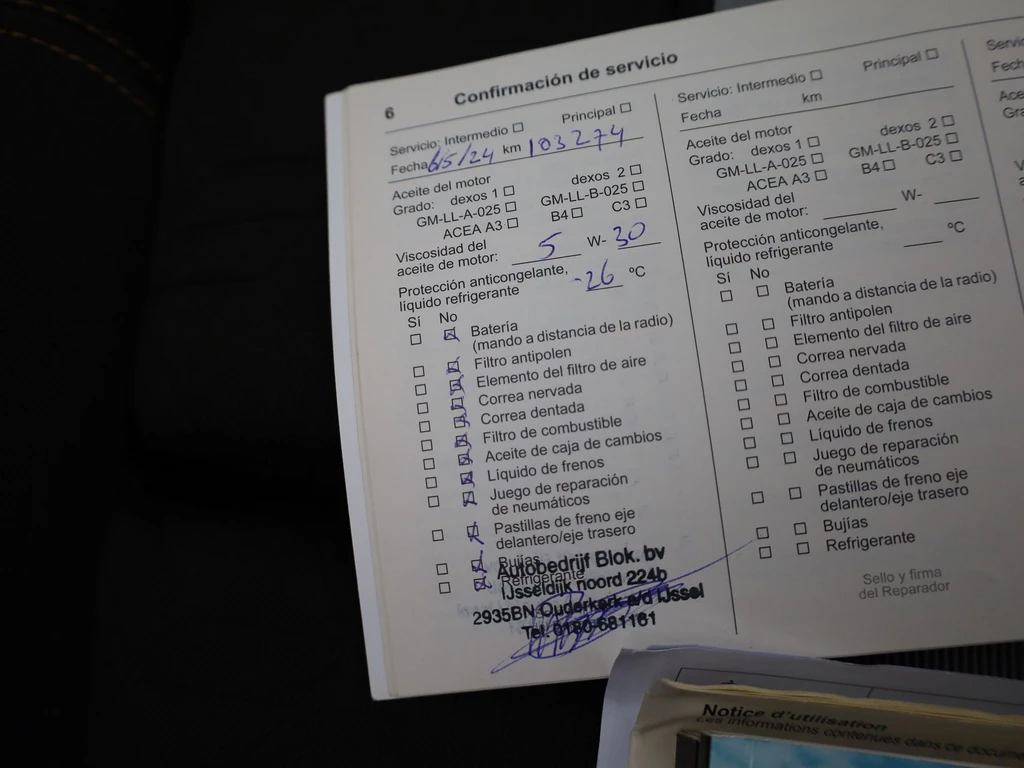 6 Confirmación de servicio
Servicio: Intermedio Principal
Fecha 6/5/24 km 103274
Aceite del motor
Grado: dexos 1 dexos 2
GM-LL-A-025 GM-LL-B-025
ACEA A3 B4 C3
Viscosidad del
aceite de motor: 5 W- 30
Protección anticongelante,
líquido refrigerante -26 °C
Sí No
Batería
(mando a distancia de la radio)
Filtro antipolen
Elemento del filtro de aire
Correa nervada
Correa dentada
Filtro de combustible
Aceite de caja de cambios
Líquido de frenos
Juego de reparación
de neumáticos
Pastillas de freno eje
delantero/eje trasero
Bujías
Refrigerante
Autobedrijf Blok. bv
IJsseldijk noord 224b
2935BN Ouderkerk a/d IJssel
Tel. 0180-681161
Servicio: Intermedio Principal
Fecha km
Aceite del motor
Grado: dexos 1 dexos 2
GM-LL-A-025 GM-LL-B-025
ACEA A3 B4 C3
Viscosidad del
aceite de motor: W-
Protección anticongelante,
líquido refrigerante °C
Sí No
Batería
(mando a distancia de la radio)
Filtro antipolen
Elemento del filtro de aire
Correa nervada
Correa dentada
Filtro de combustible
Aceite de caja de cambios
Líquido de frenos
Juego de reparación
de neumáticos
Pastillas de freno eje
delantero/eje trasero
Bujías
Refrigerante
Sello y firma
del Reparador
Notice d'utilisation
Les informations contenues dans ce